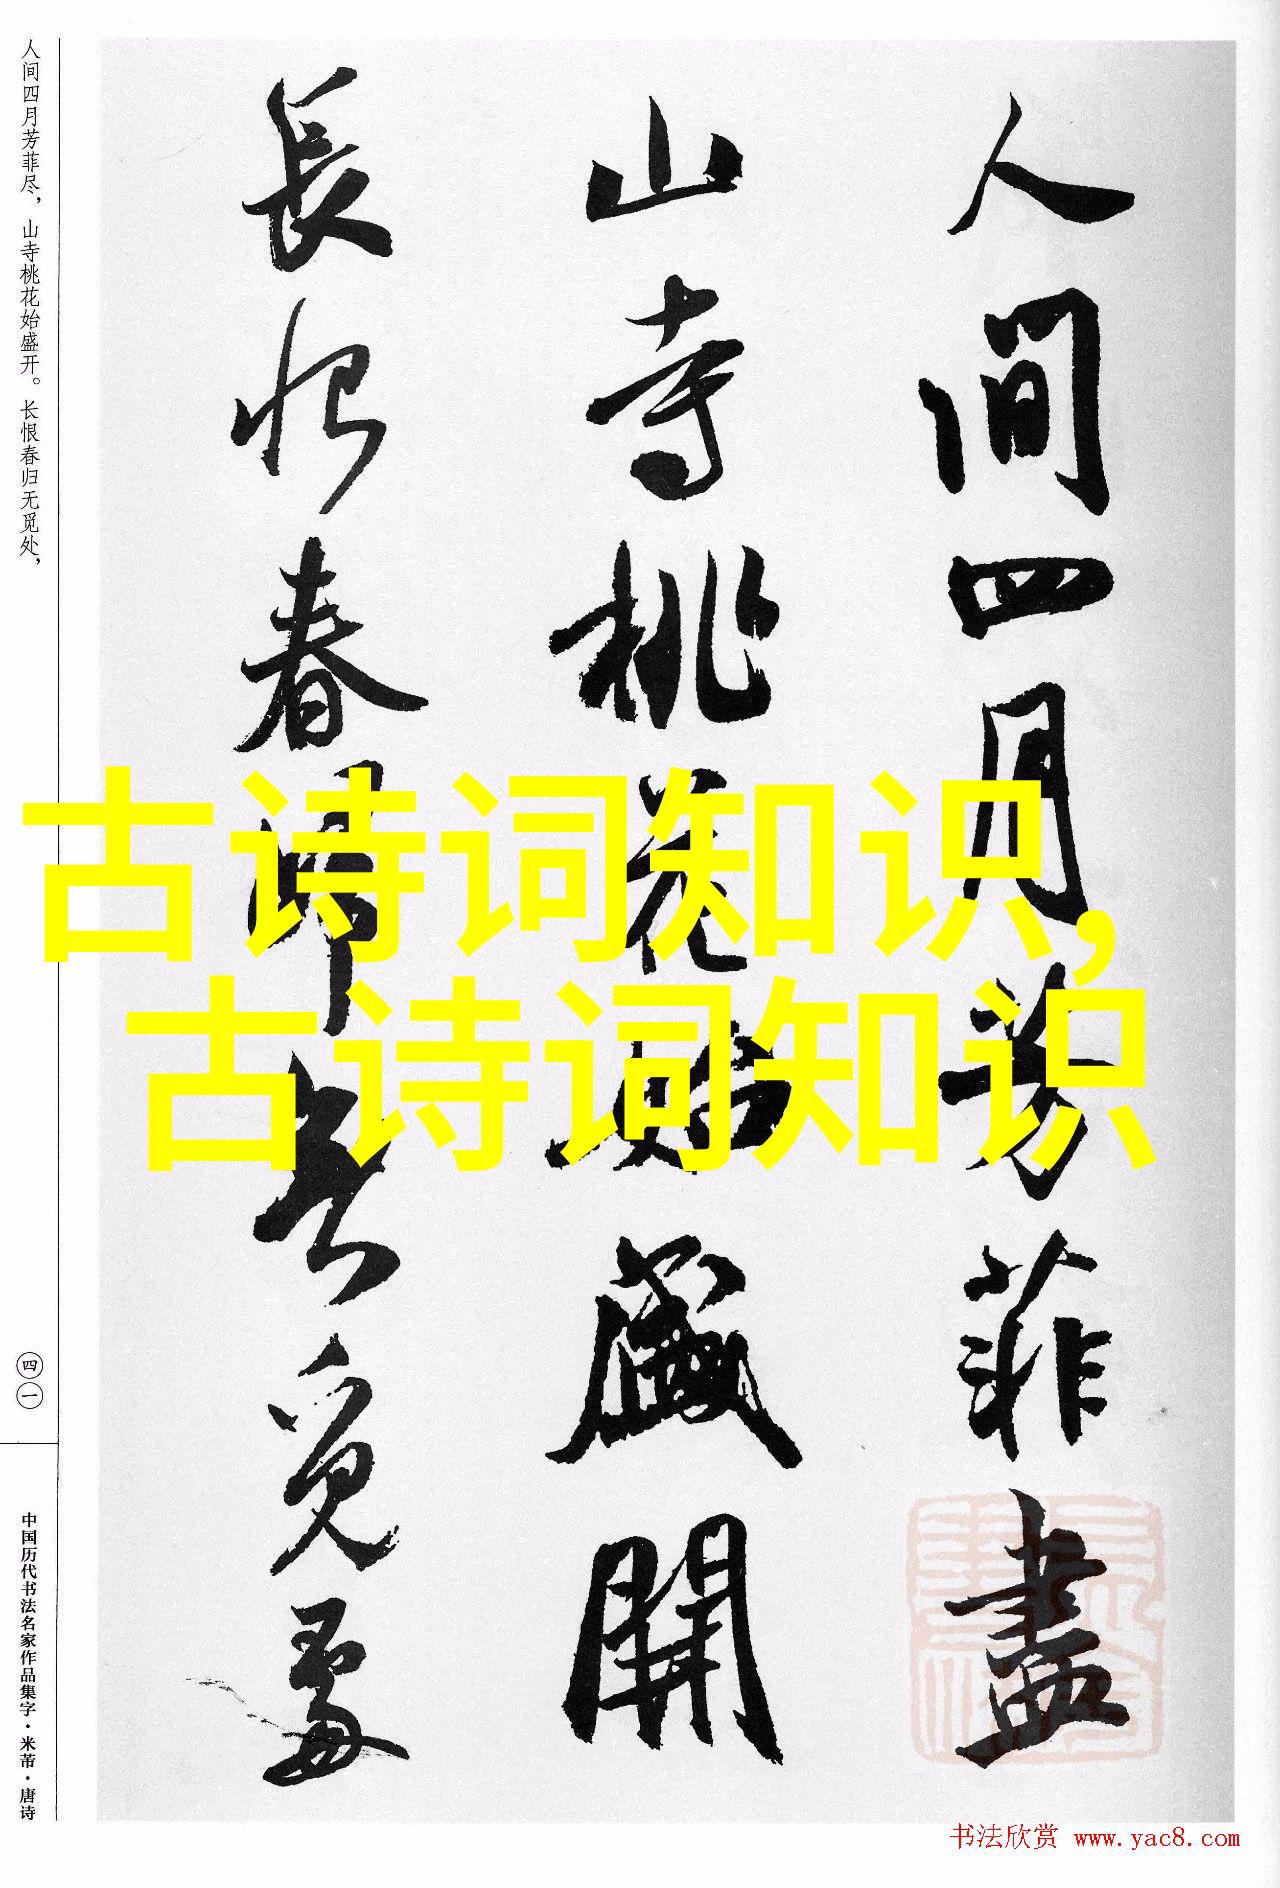 人間四月芳菲盡
山寺桃花始盛開
長恨春歸無覓處
人间四月芳菲尽，山寺桃花始盛开。长恨春归无觅处，
四一
中国历代书法名家作品集字·米芾·唐诗
古诗词知识，
古诗词知识
书法欣赏 www.yac8.com